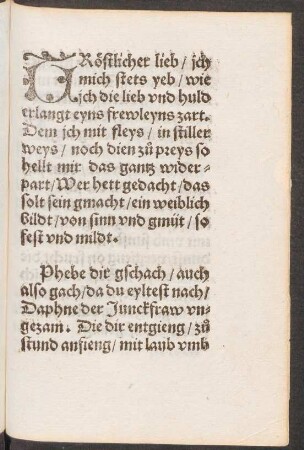 TRöstlicher lieb / jch
mich stets yeb / wie
jch die lieb vnd huld
erlangt eyns frewleyns zart.
Dem jch mit fleys / in stiller
weys / noch dien zů preys so
hellt mir das gantz wider-
part / Wer hett gedacht / das
solt sein gmacht / ein weiblich
bildt / von sinn vnd gmüt / so
fest vnd mildt.
Phebe dir gschach / auch
also gach / da du eyltest nach /
Daphne der Junckfraw vn-
gezam. Die dir entgieng / zů
stund anfieng / mit laub vmb